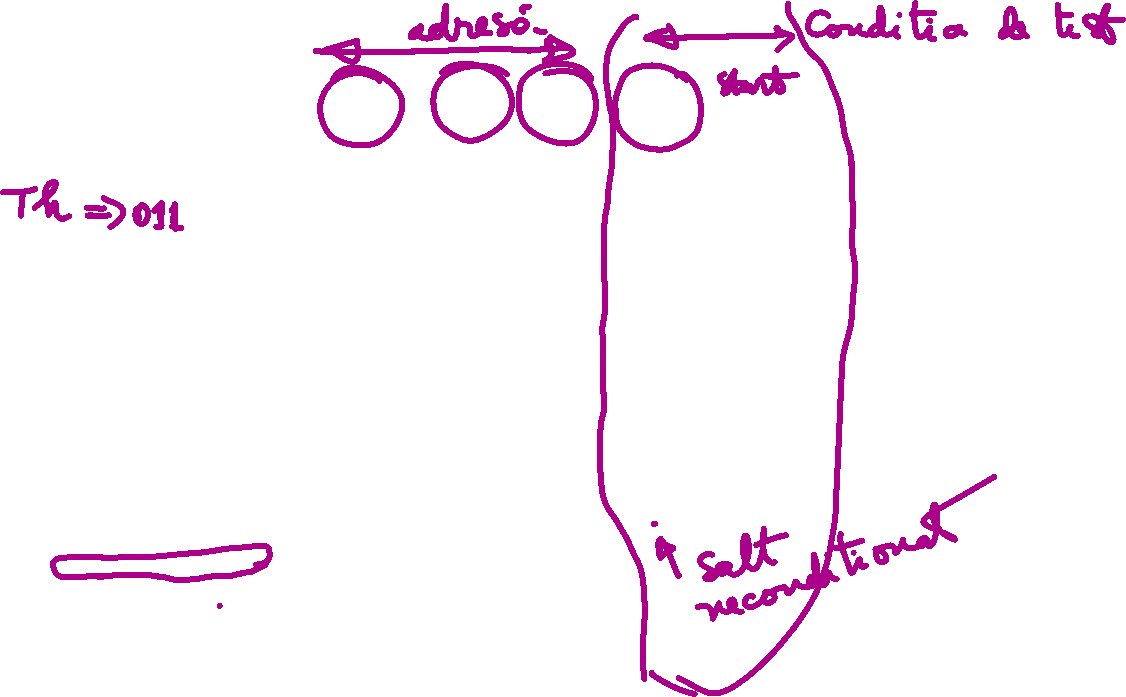 adresă
Conditia de test
start
Th => 011
Salt
neconditionat